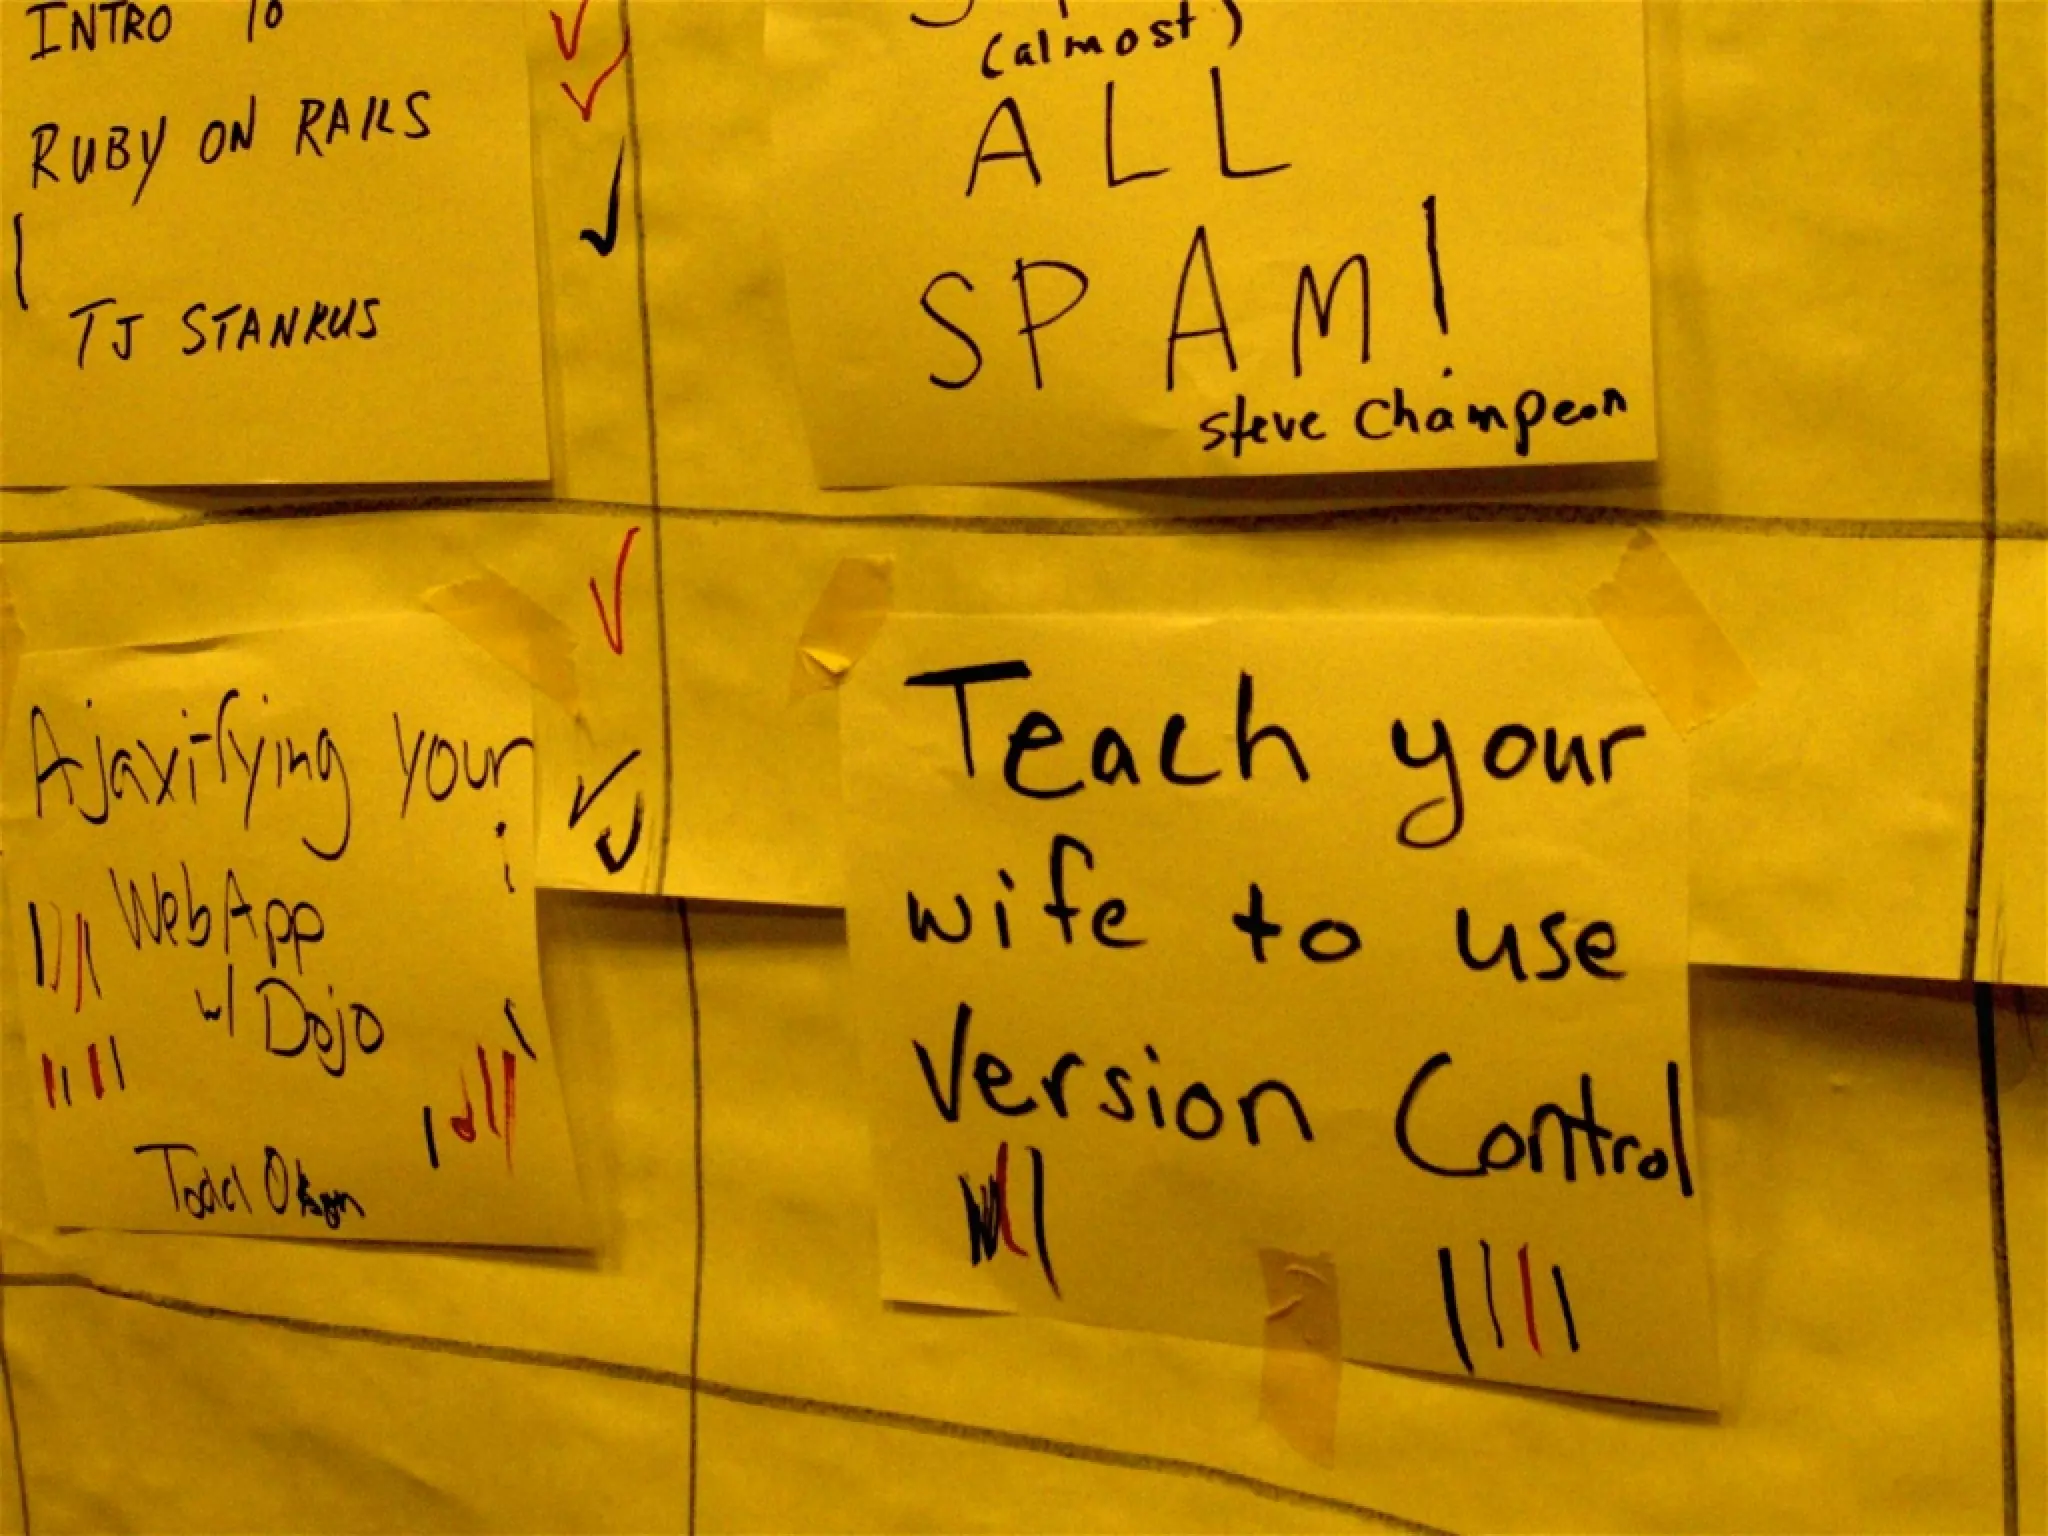 INTRO TO
RUBY ON RAILS
TJ STANKUS
(almost)
ALL
SPAM!
Steve Champeon
Ajaxifying your
WebApp
w/ Dojo
Todd Olson
Teach your
wife to use
Version Control